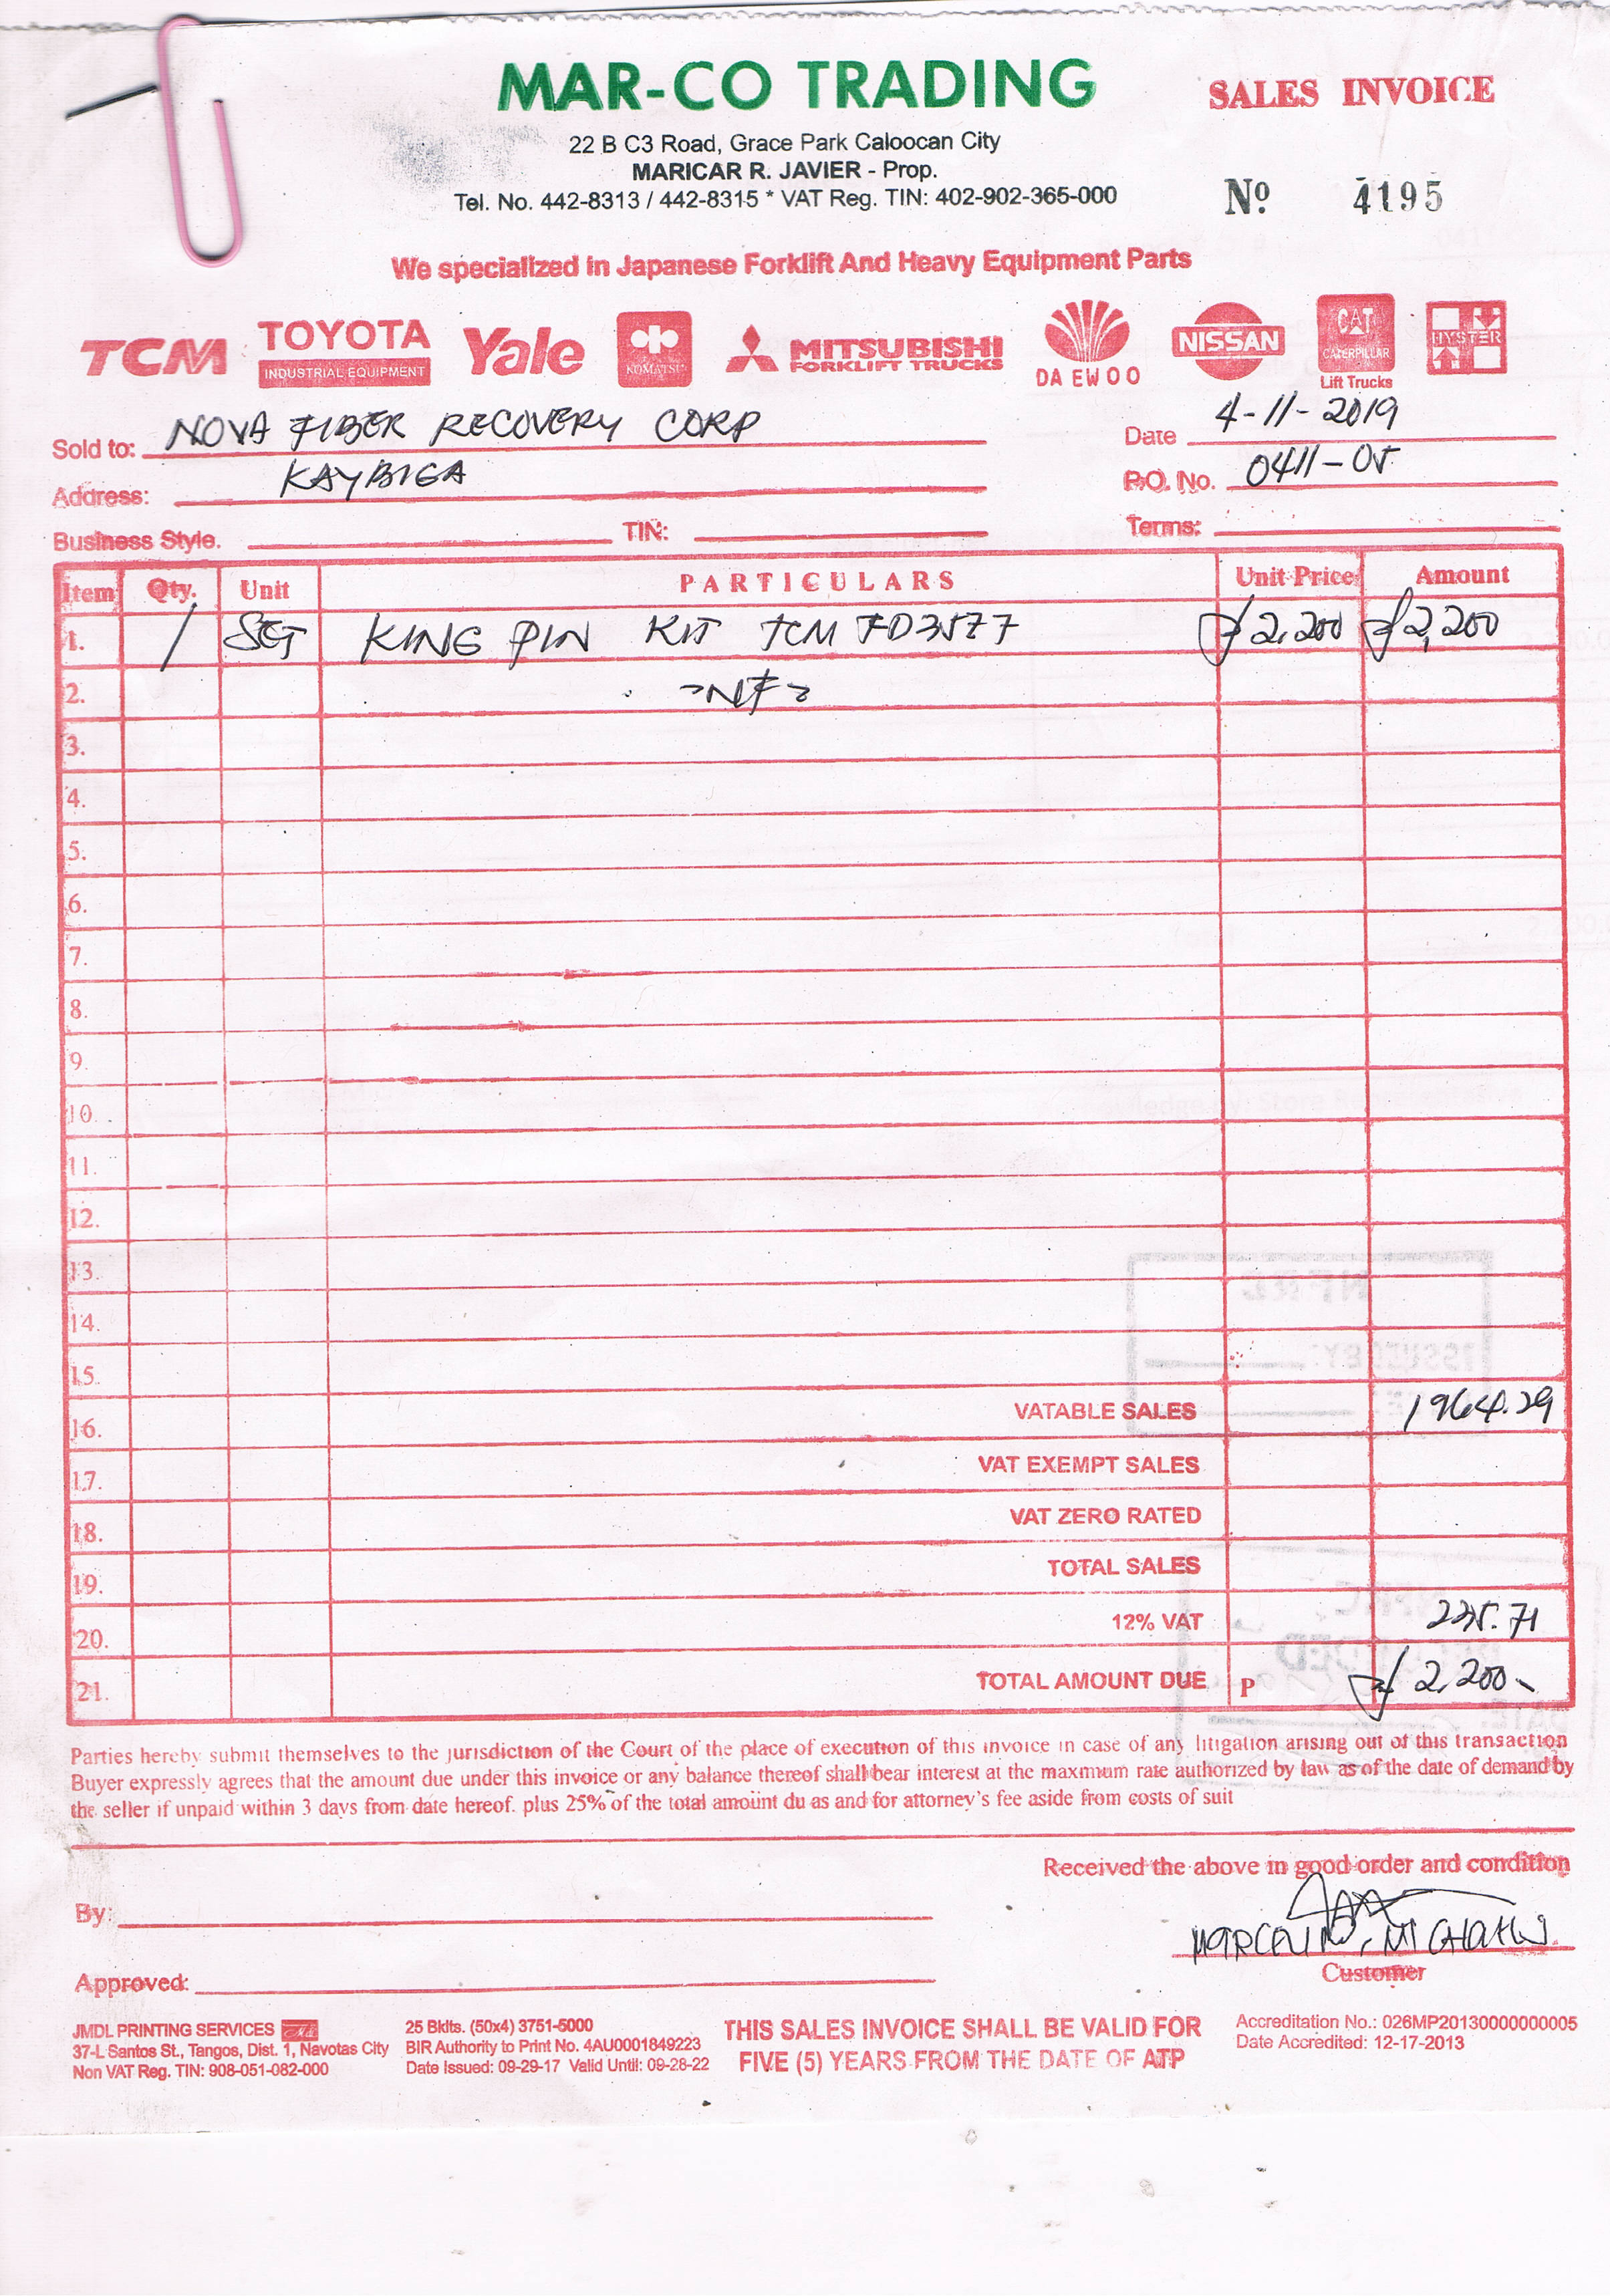 MAR-CO TRADING
SALES INVOICE
22 B C3 Road, Grace Park Caloocan City
MARICAR R. JAVIER - Prop.
Tel. No. 442-8313 / 442-8315 * VAT Reg. TIN: 402-902-365-000
Nº 4195
We specialized in Japanese Forklift And Heavy Equipment Parts
TCM TOYOTA INDUSTRIAL EQUIPMENT Yale KOMATSU MITSUBISHI FORKLIFT TRUCKS DAEWOO NISSAN CAT CATERPILLAR Lift Trucks HYSTER
Sold to: NOVA FIBER RECOVERY CORP Date 4-11-2019
Address: KAYBIGA P.O. No. 0411-05
Business Style. TIN: Terms:
Item Qty. Unit PARTICULARS Unit Price Amount
1. 1 SET KING PIN KIT TCM FD35Z7 ₱2,200 ₱2,200
2. >NF>
3.
4.
5.
6.
7.
8.
9.
10.
11.
12.
13.
14.
15.
16. VATABLE SALES 1964.29
17. VAT EXEMPT SALES
18. VAT ZERO RATED
19. TOTAL SALES
20. 12% VAT 235.71
21. TOTAL AMOUNT DUE P ₱ 2,200-
Parties hereby submit themselves to the jurisdiction of the Court of the place of execution of this invoice in case of any litigation arising out of this transaction
Buyer expressly agrees that the amount due under this invoice or any balance thereof shall bear interest at the maximum rate authorized by law as of the date of demand by
the seller if unpaid within 3 days from date hereof. plus 25% of the total amount du as and for attorney's fee aside from costs of suit
Received the above in good order and condition
By:
Customer
Approved:
JMDL PRINTING SERVICES
37-L Santos St., Tangos, Dist. 1, Navotas City
Non VAT Reg. TIN: 908-051-082-000
25 Bklts. (50x4) 3751-5000
BIR Authority to Print No. 4AU0001849223
Date Issued: 09-29-17 Valid Until: 09-28-22
THIS SALES INVOICE SHALL BE VALID FOR
FIVE (5) YEARS FROM THE DATE OF ATP
Accreditation No.: 026MP20130000000005
Date Accredited: 12-17-2013